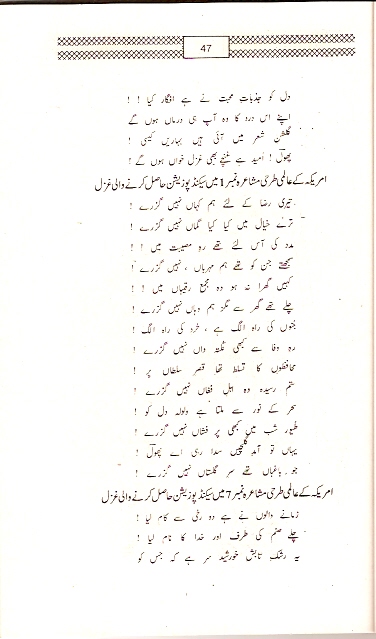 47
دل کو جذبات محبت نے ہے افگار کیا ! !
اپنے اس درد کا وہ آپ ہی درماں ہوں گے
گلشن شعر میں آئی ہیں بہاریں کیسی !
پھول ! اُمید ہے غنچے بھی غزل خواں ہوں گے !
امریکہ کے عالمی طرحی مشاعرہ نمبر 1 میں سیکنڈ پوزیشن حاصل کرنے والی غزل
تیری رضا کے لئے ہم کہاں نہیں گزرے !
ترے خیال میں کیا کیا گماں نہیں گزرے !
مدد کی آس لئے تھے رہ مصیبت میں ! !
سمجھتے جن کو تھے ہم مہرباں ، نہیں گزرے !
کہیں گھرا نہ ہو وہ مجمع رقیباں میں ! !
چلے تھے گھر سے مگر ہم وہاں نہیں گزرے !
جنوں کی راہ الگ ہے ، خرد کی راہ الگ !
رہ وفا سے کبھی نکتہ داں نہیں گزرے !
محافظوں کا تسلط تھا قصر سلطاں پر !
ستم رسیدہ وہ اہل فغاں نہیں گزرے !
سحر کے نور سے ملتا ہے ولولہ دل کو !
طیور شب میں کبھی پر فشاں نہیں گزرے !
یہاں تو آمد گلچیں سدا رہی اے پھول !
جو باغباں تھے سر گلستاں نہیں گزرے !
امریکہ کے عالمی طرحی مشاعرہ نمبر 7 میں سیکنڈ پوزیشن حاصل کرنے والی غزل
زمانے والوں نے ہے دو رخی سے کام لیا !
چلے صنم کی طرف اور خدا کا نام لیا !
یہ رشک تابش خورشید سر ہے کہ جس کو